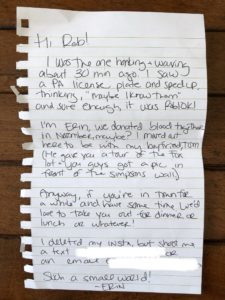 Hi Rob!
I was the one honking + waving
about 30 min ago. I saw
a PA license plate and sped up,
thinking, "maybe I know them"
and sure enough, it was Rob/Ok!
I'm Erin, we donated blood together
in November, maybe? I moved out
here to be with my boyfriend, Tom
(He gave you a tour of the Fox
lot - you guys got a pic in
front of the Simpsons wall)
Anyway, if you're in town for
a while and have some time we'd
love to take you out for dinner or
lunch or whatever!
I deleted my insta, but shoot me
a text or
an email
Such a small world!
- ERIN